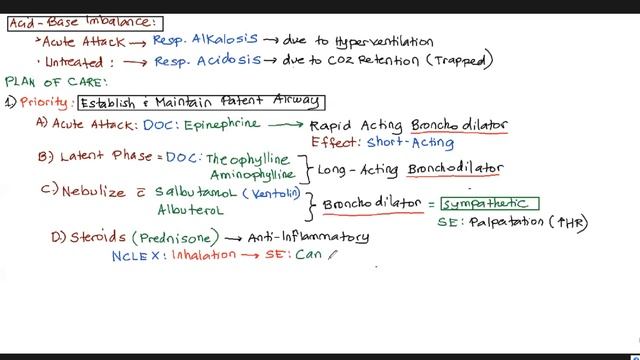 Acid-Base Imbalance:
Acute Attack → Resp. Alkalosis → due to Hyperventilation
Untreated: → Resp. Acidosis → due to CO2 Retention (Trapped)
PLAN OF CARE:
1) Priority: Establish & Maintain Patent Airway
A) Acute Attack: DOC: Epinephrine → Rapid Acting Bronchodilator
Effect: Short-Acting
B.) Latent Phase = DOC: Theophylline
Aminophylline } Long-Acting Bronchodilator
C.) Nebulize c̄ Salbutamol (Ventolin)
Albuterol } Bronchodilator = Sympathetic
SE: Palpatation (↑HR)
D.) Steroids (Prednisone) → Anti-Inflammatory
NCLEX: Inhalation → SE: Can